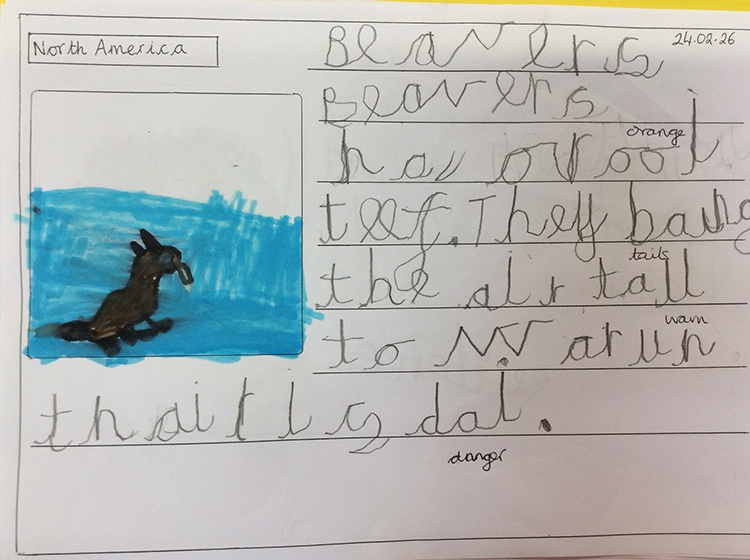 North America
24.02.26
Beavers
Beavers
orange
hav
teef. They bang
tails
the air tall
warn
to
that is dai.
danger